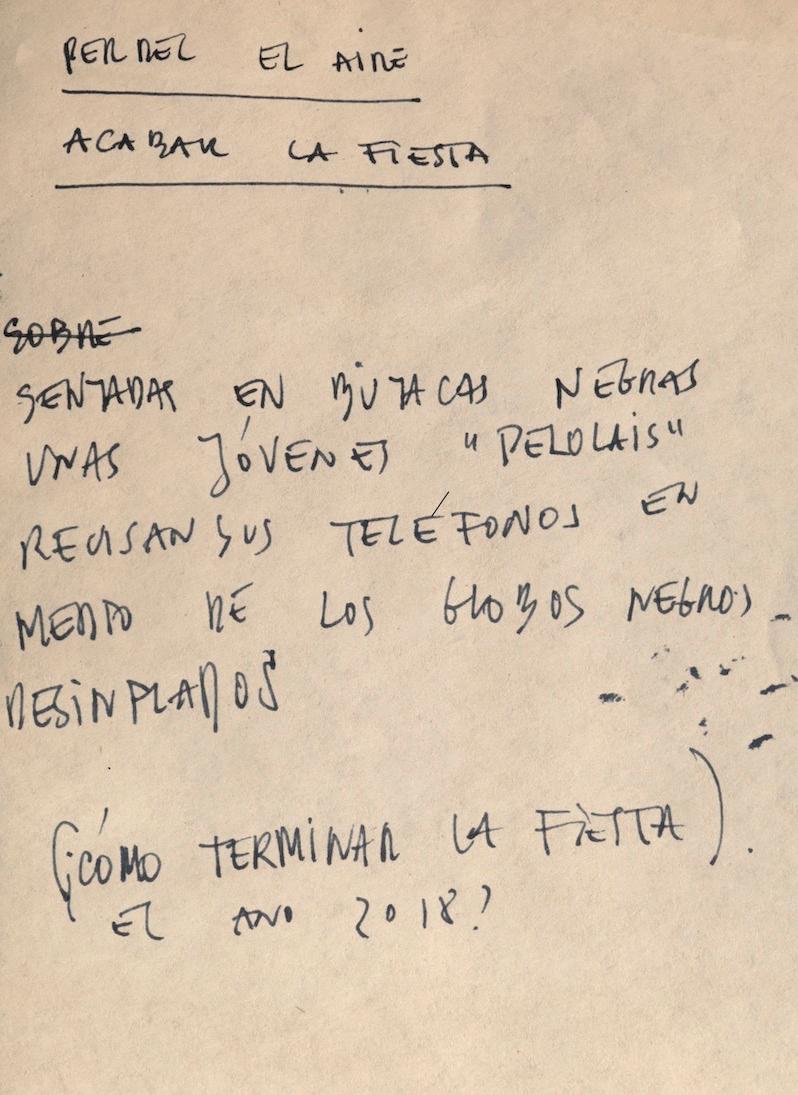 PERDER EL AIRE
ACABAR LA FIESTA
SOBRE
SENTADAS EN BUTACAS NEGRAS
UNAS JÓVENES "PELOLAIS"
REVISAN SUS TELÉFONOS EN
MEDIO DE LOS GLOBOS NEGROS
DESINFLADOS
(¿CÓMO TERMINAR LA FIESTA).
EL ANO 2018?